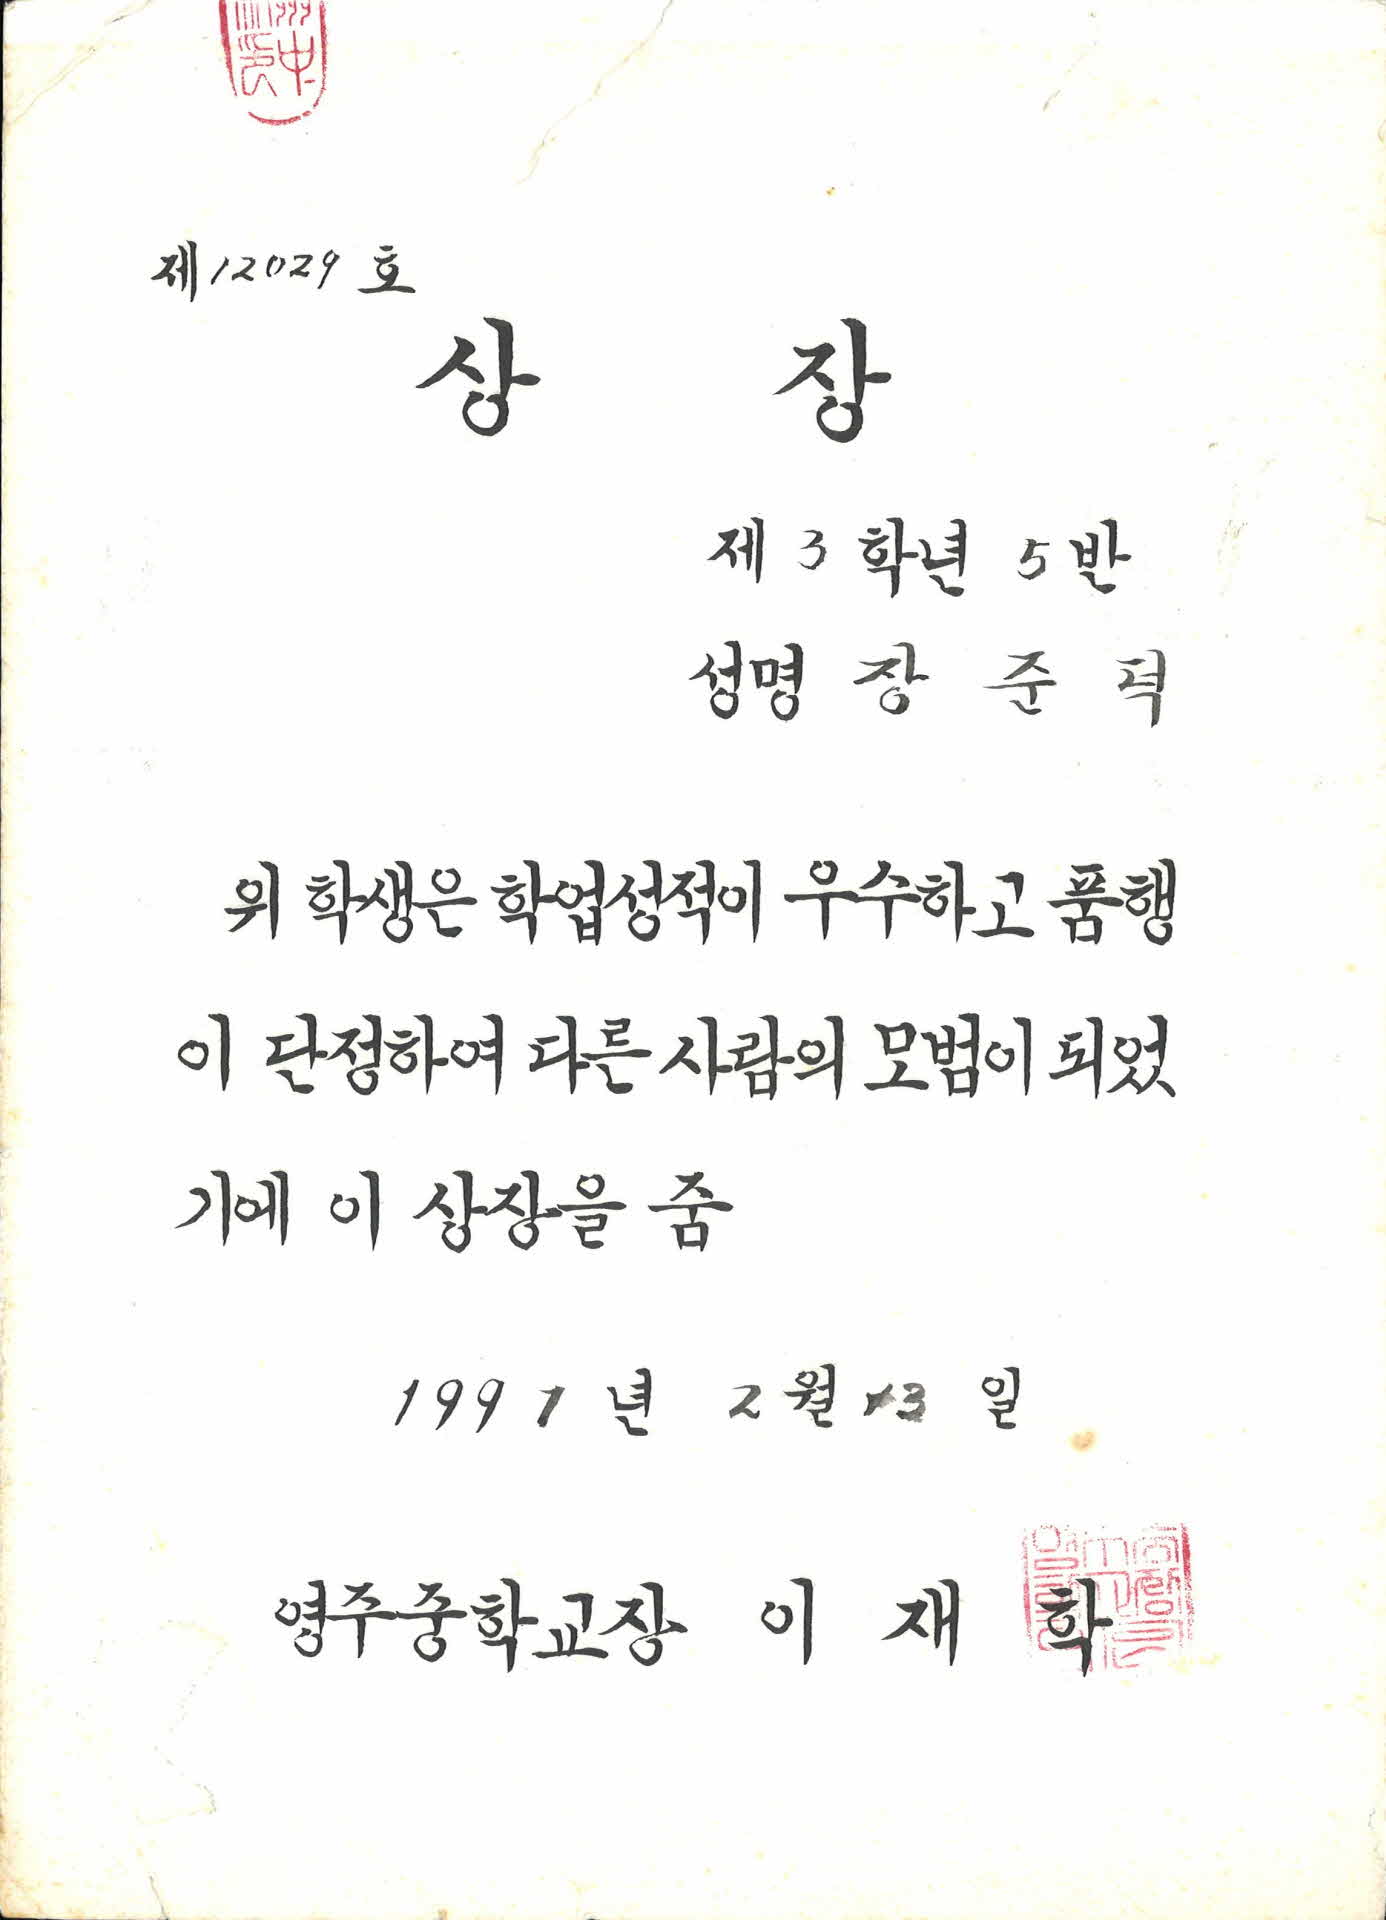 제 12029 호
상 장
제 3 학년 5 반
성명 장 준 덕
위 학생은 학업성적이 우수하고 품행
이 단정하여 다른 사람의 모범이 되었
기에 이 상장을 줌
1991 년 2 월 13 일
영주중학교장 이 재 학